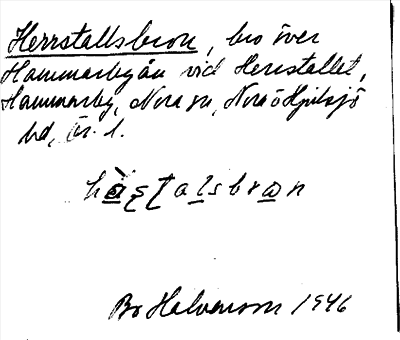 Herrstallsbron, bro över
Hammarbyån vid Herrstallet,
Hammarby, Nora sn, Nora ö Hjulsjö
hd, Ör. l.
hä̀sṭalsbrωn
Bo Halvarson 1946